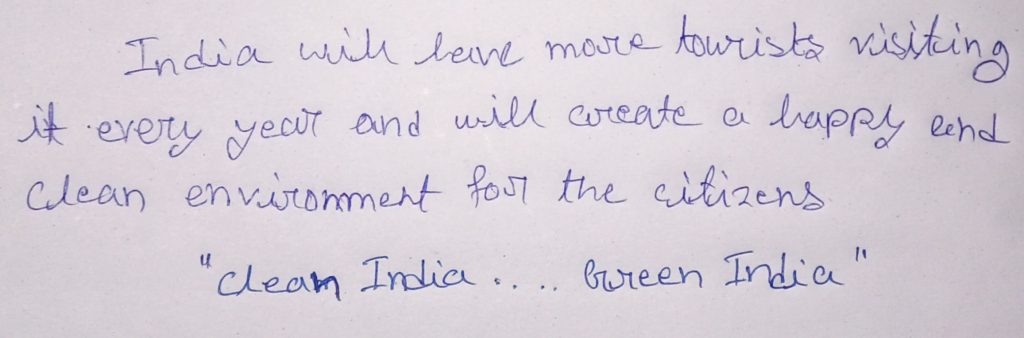 India will have more tourists visiting
it every year and will create a happy and
clean environment for the citizens
"clean India .... Green India"